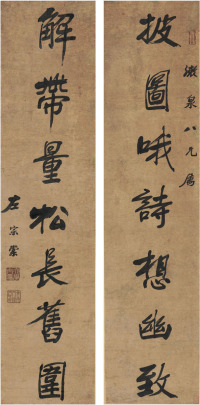 澂泉八兄屬
披圖哦詩想幽致
解帶量松長舊圍
左宗棠